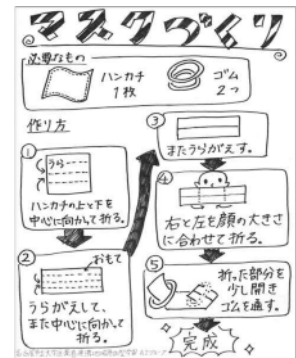 マスクづくり
必要なもの
ハンカチ
1枚
ゴム
2つ
作り方
①
うら
ハンカチの上と下を
中心に向かって折る。
②
おもて
うらがえして、
また中心に向かって
折る。
③
またうらがえす。
④
右と左を顔の大きさ
に合わせて折る。
⑤
折った部分を
少し開き
ゴムを通す。
完成